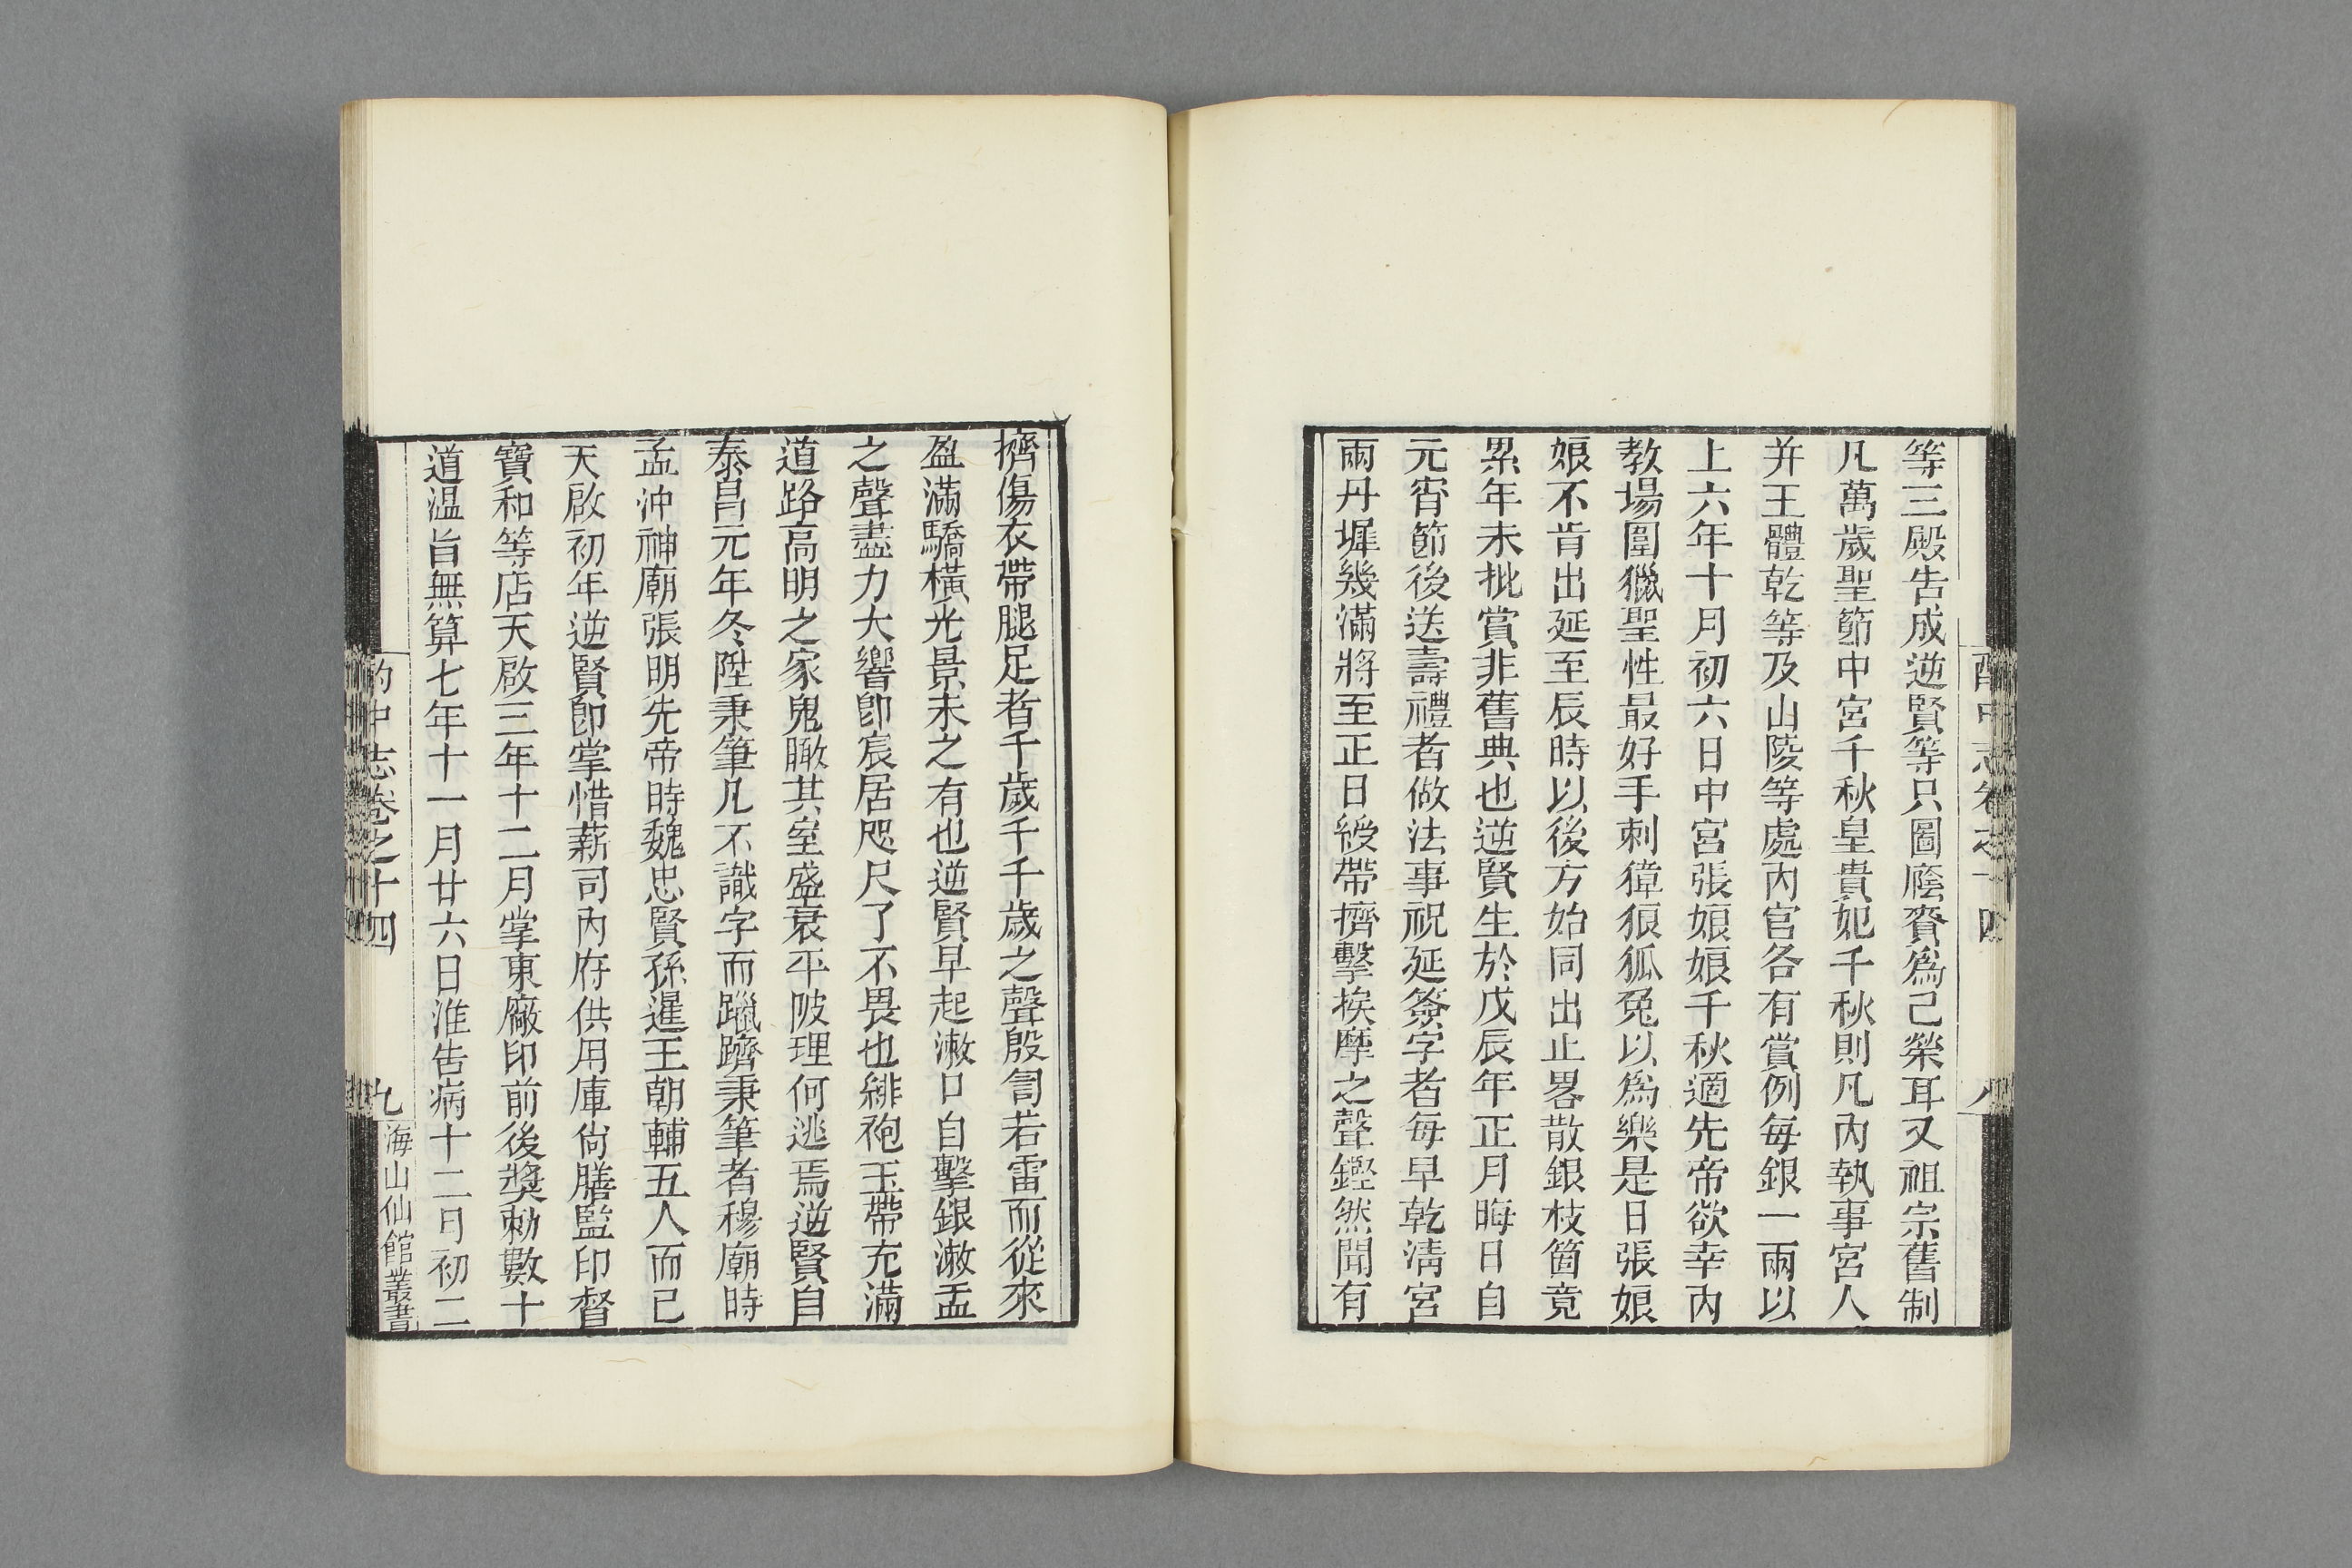 等三殿告成逆賢等只圖廕賚爲己榮耳又祖宗舊制
凡萬歲聖節中宮千秋皇貴妃千秋則凡內執事宮人
并王體乾等及山陵等處內官各有賞例每銀一兩以
上六年十月初六日中宮張娘娘千秋適先帝欲幸內
教場圍獵聖性最好手刺獐狼狐兔以爲樂是日張娘
娘不肯出延至辰時以後方始同出止畧散銀枝箇竟
累年未批賞非舊典也逆賢生於戊辰年正月晦日自
元宵節後送壽禮者做法事祝延簽字者每早乾淸宮
兩丹墀幾滿將至正日綬帶擠擊挨摩之聲鏗然聞有
酌中志卷之十四
八
擠傷衣帶腿足者千歲千千歲之聲殷訇若雷而從來
盈滿驕橫光景未之有也逆賢早起漱口自擊銀漱盂
之聲盡力大響卽宸居咫尺了不畏也緋袍玉帶充滿
道路高明之家鬼瞰其室盛衰平陂理何逃焉逆賢自
泰昌元年冬陞秉筆凡不識字而躐躋秉筆者穆廟時
孟沖神廟張明先帝時魏忠賢孫暹王朝輔五人而已
天啟初年逆賢卽掌惜薪司內府供用庫尙膳監印督
寶和等店天啟三年十二月掌東廠印前後獎勑數十
道溫旨無算七年十一月廿六日淮告病十二日初二
酌中志卷之十四
九
海山仙館叢書